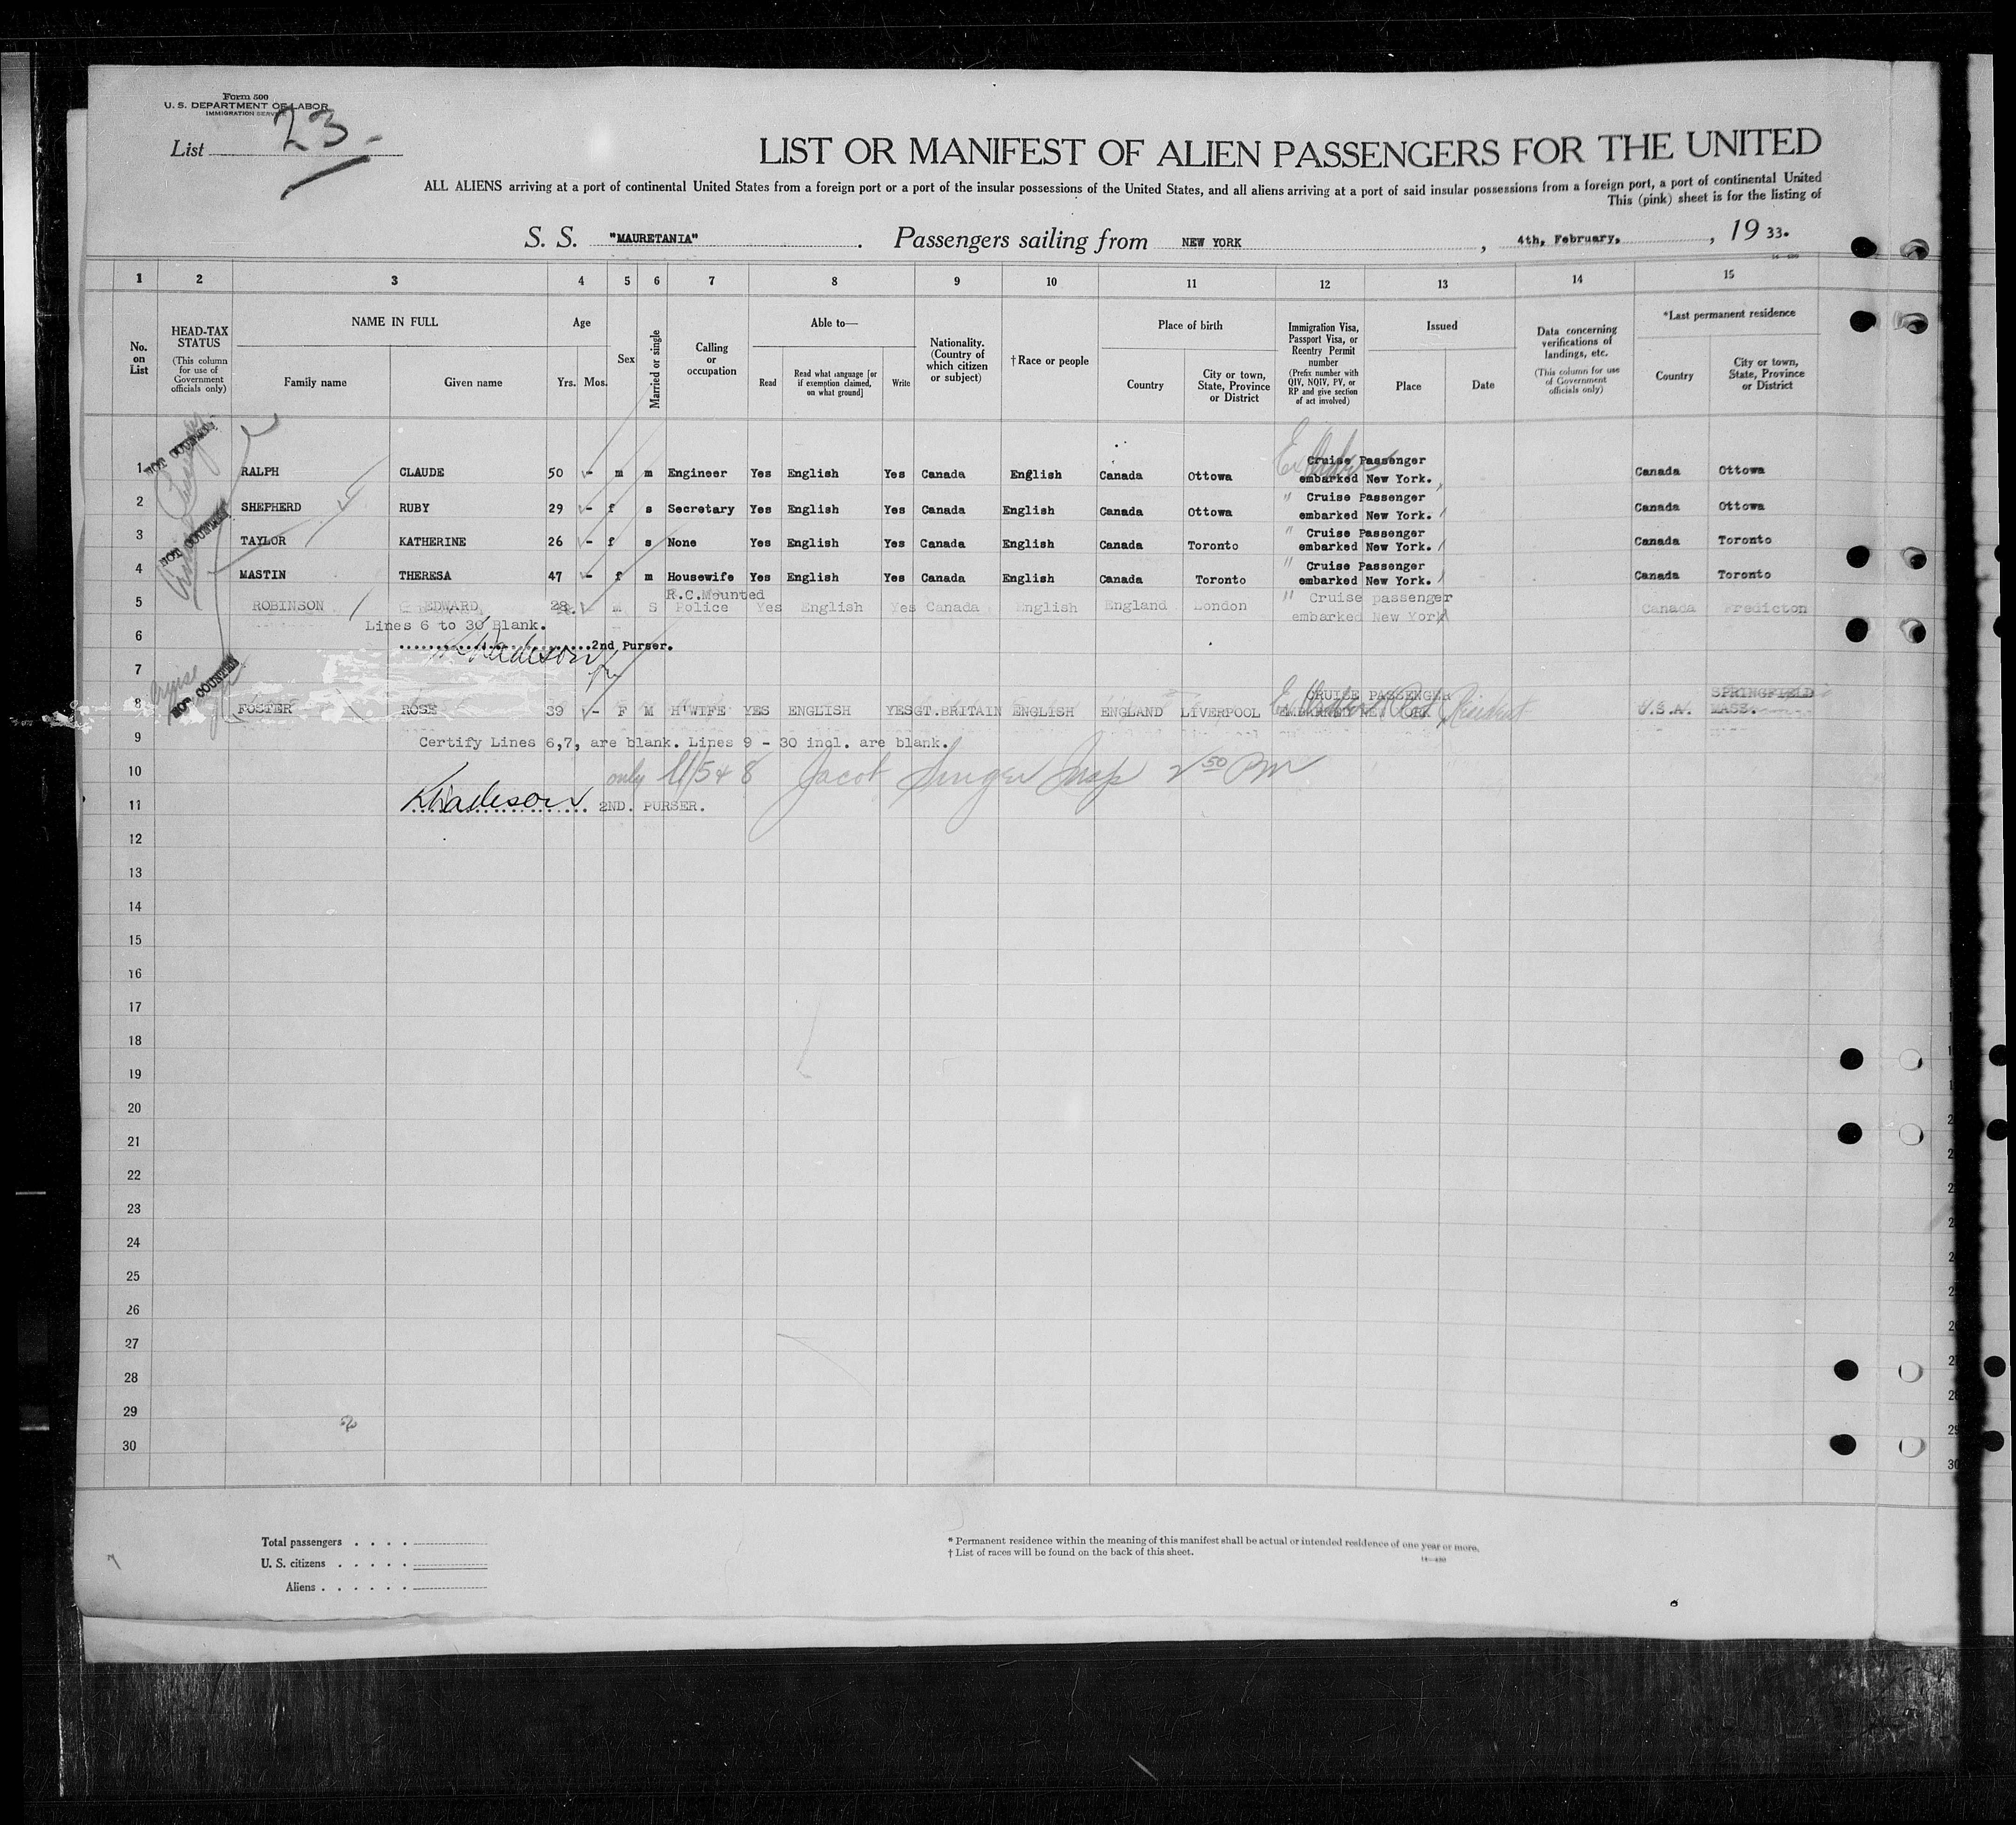 Form 500
U. S. DEPARTMENT OF LABOR
IMMIGRATION SERVICE
List 23.
LIST OR MANIFEST OF ALIEN PASSENGERS FOR THE UNITED
ALL ALIENS arriving at a port of continental United States from a foreign port or a port of the insular possessions of the United States, and all aliens arriving at a port of said insular possessions from a foreign port, a port of continental United
This (pink) sheet is for the listing of
S. S. "MAURETANIA" . Passengers sailing from NEW YORK , 4th, February, , 19 33.
1 2 3 4 5 6 7 8 9 10 11 12 13 14 15
No. on List
HEAD-TAX STATUS
(This column for use of Government officials only)
NAME IN FULL
Family name Given name
Age
Yrs. Mos.
Sex
Married or single
Calling or occupation
Able to—
Read
Read what language [or if exemption claimed, on what ground]
Write
Nationality. (Country of which citizen or subject)
†Race or people
Place of birth
Country
City or town, State, Province or District
Immigration Visa, Passport Visa, or Reentry Permit number
(Prefix number with QIV, NQIV, PV, or RP and give section of act involved)
Issued
Place Date
Data concerning verifications of landings, etc.
(This column for use of Government officials only)
*Last permanent residence
Country
City or town, State, Province or District
NOT COUNTED
1 RALPH CLAUDE 50 - m m Engineer Yes English Yes Canada English Canada Ottowa Cruise Passenger embarked New York. Canada Ottowa
2 SHEPHERD RUBY 29 - f s Secretary Yes English Yes Canada English Canada Ottowa " Cruise Passenger embarked New York. Canada Ottowa
NOT COUNTED
3 TAYLOR KATHERINE 26 - f s None Yes English Yes Canada English Canada Toronto " Cruise Passenger embarked New York. Canada Toronto
4 MASTIN THERESA 47 - f m Housewife Yes English Yes Canada English Canada Toronto " Cruise Passenger embarked New York. Canada Toronto
5 ROBINSON EDWARD 28 - m S R.C.Mounted Police Yes English Yes Canada English England London " Cruise passenger embarked New York Canada Fredicton
Lines 6 to 30 Blank.
6 2nd Purser.
7
Cruise
NOT COUNTED
8 FOSTER ROSE 39 - F M H'WIFE YES ENGLISH YES GT.BRITAIN ENGLISH ENGLAND LIVERPOOL CRUISE PASSENGER EMBARKED NEW YORK Resident U.S.A. SPRINGFIELD MASS.
9 Certify Lines 6,7, are blank. Lines 9 - 30 incl. are blank.
10 only 1/5 & 8 Jacob Singer Insp 2 50 PM
11 2ND. PURSER.
12
13
14
15
16
17
18
19
20
21
22
23
24
25
26
27
28
29
30
Total passengers . . . .
U. S. citizens . . . . .
Aliens . . . . . .
* Permanent residence within the meaning of this manifest shall be actual or intended residence of one year or more.
† List of races will be found on the back of this sheet.
14—430